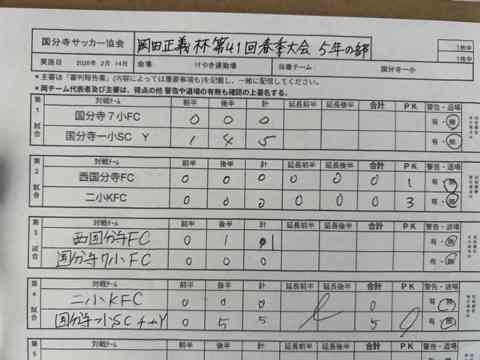 国分寺サッカー協会 岡田正義杯第41回春季大会 5年の部 1枚中 1枚目
実施日 2026年 2月 14日 会場: けやき運動場 当番チーム: 国分寺一小
*主審は「審判報告書」(内容によっては重要事項も)を記載し、一緒に配信してください。
*両チーム代表者及び主審は、得点の他 警告や退場の有無も確認の上署名する。
第1試合 対戦チーム 前半 後半 計 延長前半 延長後半 合計 PK 警告・退場
国分寺7小FC 0 0 0 有・無
国分寺一小SC Y 1 4 5 有・無
第2試合 対戦チーム 前半 後半 計 延長前半 延長後半 合計 PK 警告・退場
西国分寺FC 0 0 0 0 0 0 1 有・無
二小KFC 0 0 0 0 0 0 3 有・無
第3試合 対戦チーム 前半 後半 計 延長前半 延長後半 合計 PK 警告・退場
西国分寺FC 0 1 1 有・無
国分寺7小FC 0 0 0 有・無
第4試合 対戦チーム 前半 後半 計 延長前半 延長後半 合計 PK 警告・退場
二小KFC 0 0 0 0 有・無
国分寺一小SCチームY 0 5 5 5 有・無
対戦チーム 前半 後半 計 延長前半 延長後半 合計 PK 警告・退場